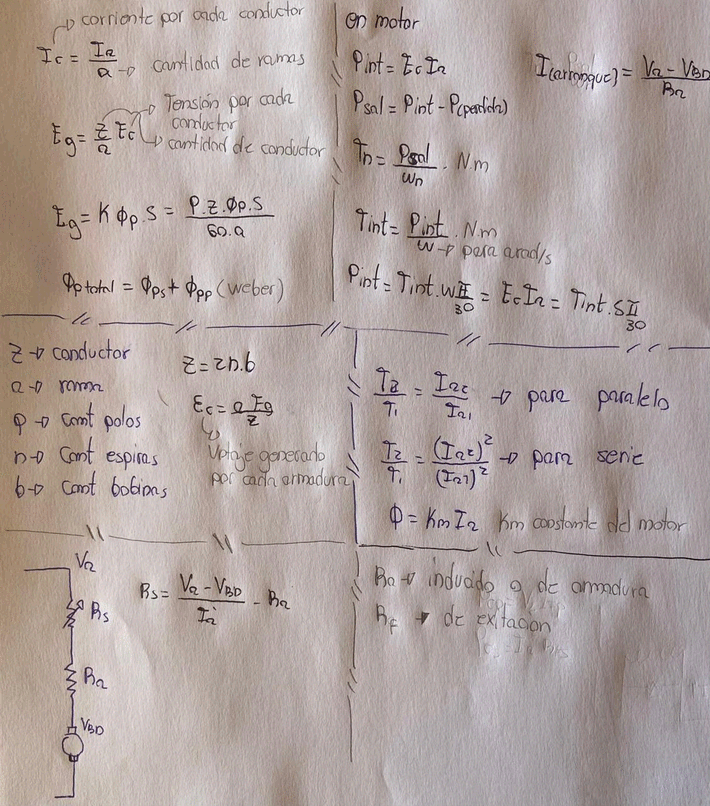 corriente por cada conductor
Ic = Ia / a → cantidad de ramas
Eg = Z/a Ec → Tensión por cada
conductor
→ cantidad de conductor
Eg = K Φp . S = P.Z.Φp.S / 60.a
Φp total = Φps + Φpp (weber)
en motor
Pint = Ec Ia
I(arranque) = Va - VBD / Ra
Psal = Pint - P(perdida)
Tn = Psal / wn . N.m
Tint = Pint / w . N.m
→ para a rad/s
Pint = Tint . w π/30 = Ec Ia = Tint . S π/30
Z → conductor
a → rama
P → Cant polos
n → Cant espiras
b → Cant bobinas
Z = 2n.b
Ec = a Eg / Z
Voltaje generado
por cada armadura
T2/T1 = Ia2/Ia1 → para paralelo
T2/T1 = (Ia2)² / (Ia1)² → para serie
Φ = Km Ia Km constante del motor
Va
Rs
Ra
VBD
Rs = Va - VBD / Ia - Ra
Ra → inducido o de armadura
Rf → de exitacion